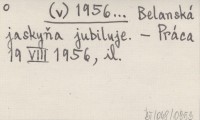 o
(v) 1956... Belanská
jaskyňa jubiluje. – Práca
19 VIII 1956, il.